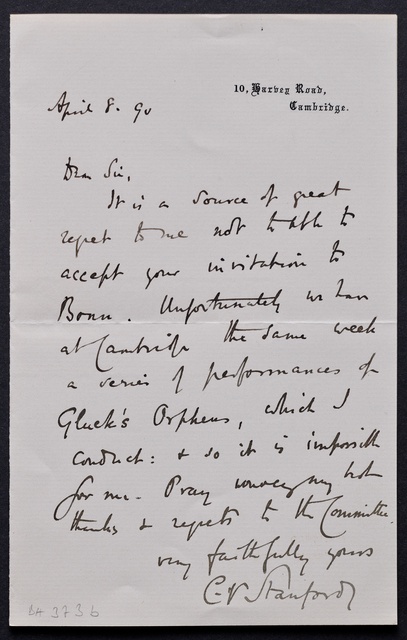 10, Harvey Road,
Cambridge.
April 8. 90
Dear Sir,
It is a source of great
regret to me not to able to
accept your invitation to
Bonn. Unfortunately we have
at Cambridge the same week
a series of performances of
Gluck's Orpheus, which I
conduct: & so it is impossible
for me. Pray convey my best
thanks & regrets to the Committee.
very faithfully yours
C. V. Stanford
BH 373b